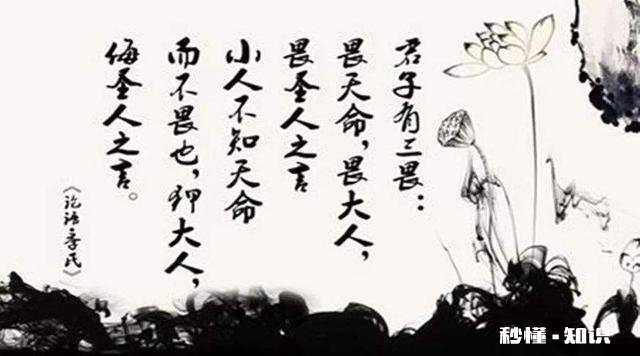 君子有三畏：
畏天命，畏大人，
畏圣人之言
小人不知天命
而不畏也，狎大人，
侮圣人之言。
《论语·季氏》
秒懂·知识